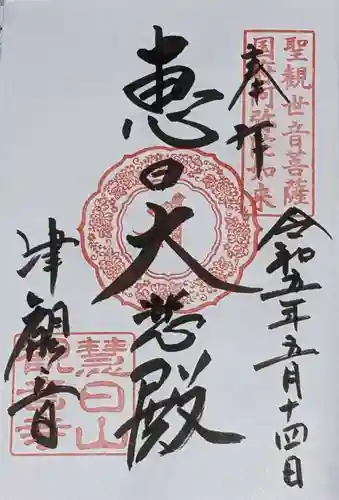 奉拝
聖観世音菩薩
国府阿弥陀如来
令和五年五月十四日
恵日大悲殿
津観音
慧日山
観音寺